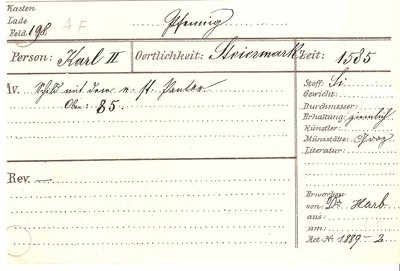 Kasten
Lade
Feld 198 AF
Pfennig
Person: Karl II Oertlichkeit: Steiermark Zeit: 1585
Av. Schild mit dem n. st. Panter
Oben: 85
Stoff: Si
Gewicht:
Durchmesser:
Erhaltung: ziemlich
Künstler:
Münzstätte: Graz
Literatur:
Rev. —
Erworben
von: Dr. Harb
aus:
um:
Act No: 1889-2